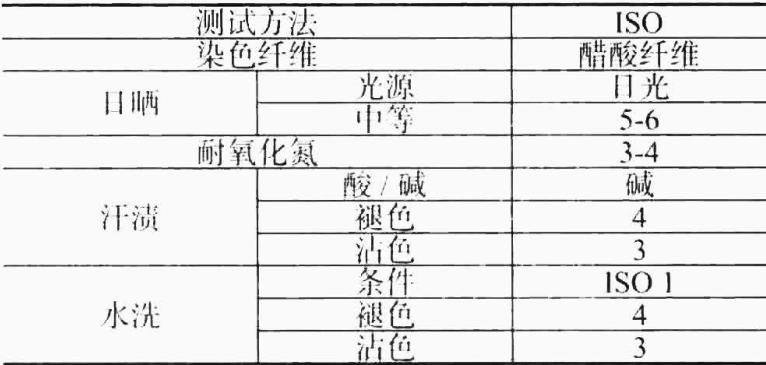 测试方法 ISO
染色纤维 醋酸纤维
日晒 光源 日光
中等 5-6
耐氧化氮 3-4
汗渍 酸 / 碱 碱
褪色 4
沾色 3
水洗 条件 ISO 1
褪色 4
沾色 3